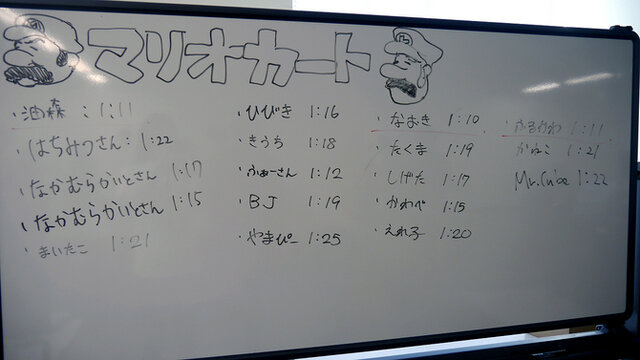 マリオカート
・油森：1:11
・はちみつさん：1:22
・なかむらかいとさん 1:17
・なかむらかいとさん 1:15
・まいたこ 1:21
・ひびき 1:16
・きうち 1:18
・ふぁーさん 1:12
・BJ 1:19
・やまぴー 1:25
・なおき 1:10
・たくま 1:19
・しげた 1:17
・かわべ 1:15
・えれ子 1:20
1:11
かねこ 1:21
Mr.Cube 1:22